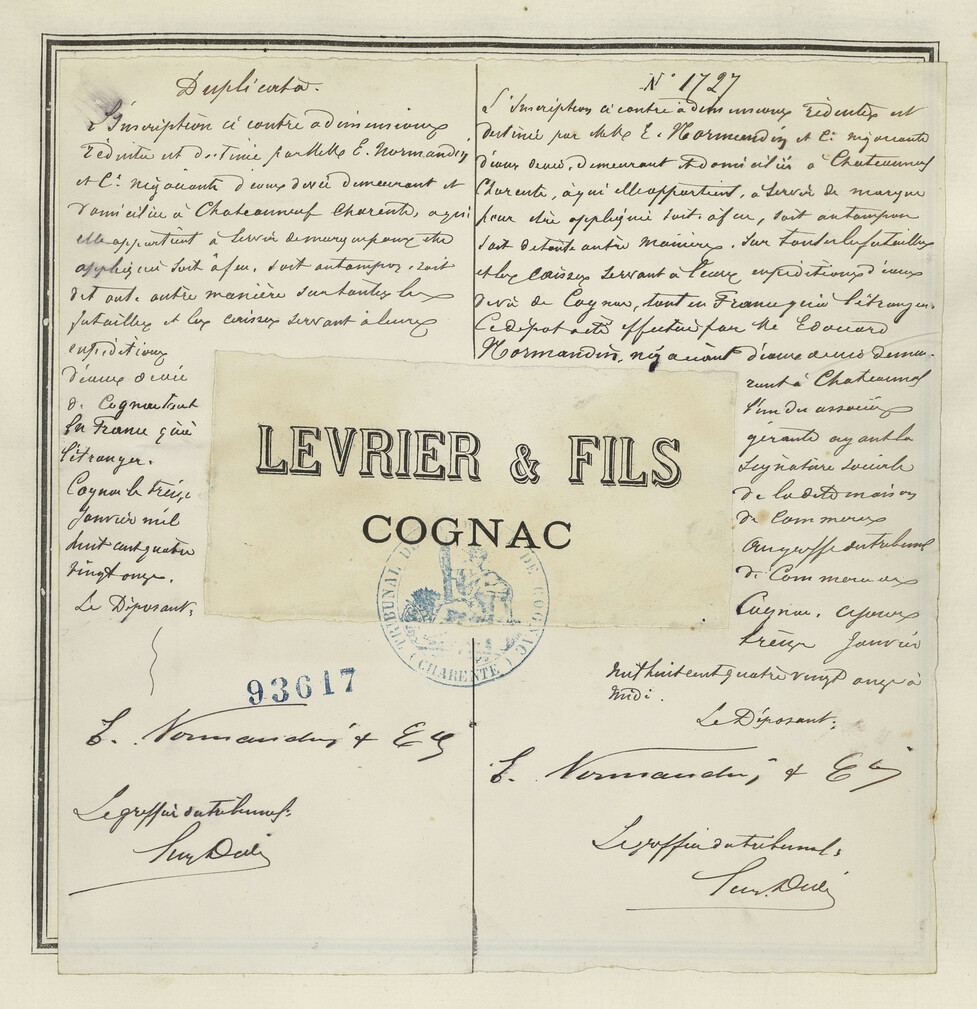 Duplicata.
L'Inscription ci contre a dimensions
réduites est destinée par Melle E. Normandin
et Cie négociants d'eaux de vie demeurant et
domiciliés à Chateauneuf Charente, a qui
elle appartient à servir de marque pour être
appliquée soit à feu, soit au tampon, soit
de toute autre manière sur toutes les
futailles et les caisses servant à leurs
expéditions
d'eaux de vie
de Cognac tant
en France qu'à
l'étranger.
Cognac le treize
Janvier mil
huit cent quatre
vingt onze.
Le Déposant:
93617
E. Normandin & Cie
Le greffier du tribunal:
N° 1727
L'Inscription ci contre a dimensions réduites est
destinée par Melle E. Normandin et Cie négociants
d'eaux de vie, demeurant & domiciliés à Chateauneuf
Charente, à qui elle appartient, à servir de marque
pour être appliquée soit à feu, soit au tampon
soit de toute autre manière, sur toutes les futailles
et les caisses servant à leurs expéditions d'eaux
de vie de Cognac, tant en France qu'à l'étranger.
Ce dépôt a été effectué par Mr Edouard
Normandin, négociant d'eaux de vie demeu-
rant à Chateauneuf
l'un des associés
gérants ayant la
signature sociale
de la dite maison
de Commerce
au greffe du tribunal
de Commerce de
Cognac, ce jour
treize Janvier
mil huit cent quatre vingt onze à
midi.
Le Déposant:
E. Normandin & Cie
Le greffier du tribunal:
LEVRIER & FILS
COGNAC
TRIBUNAL DE DE COGNAC
(CHARENTE)